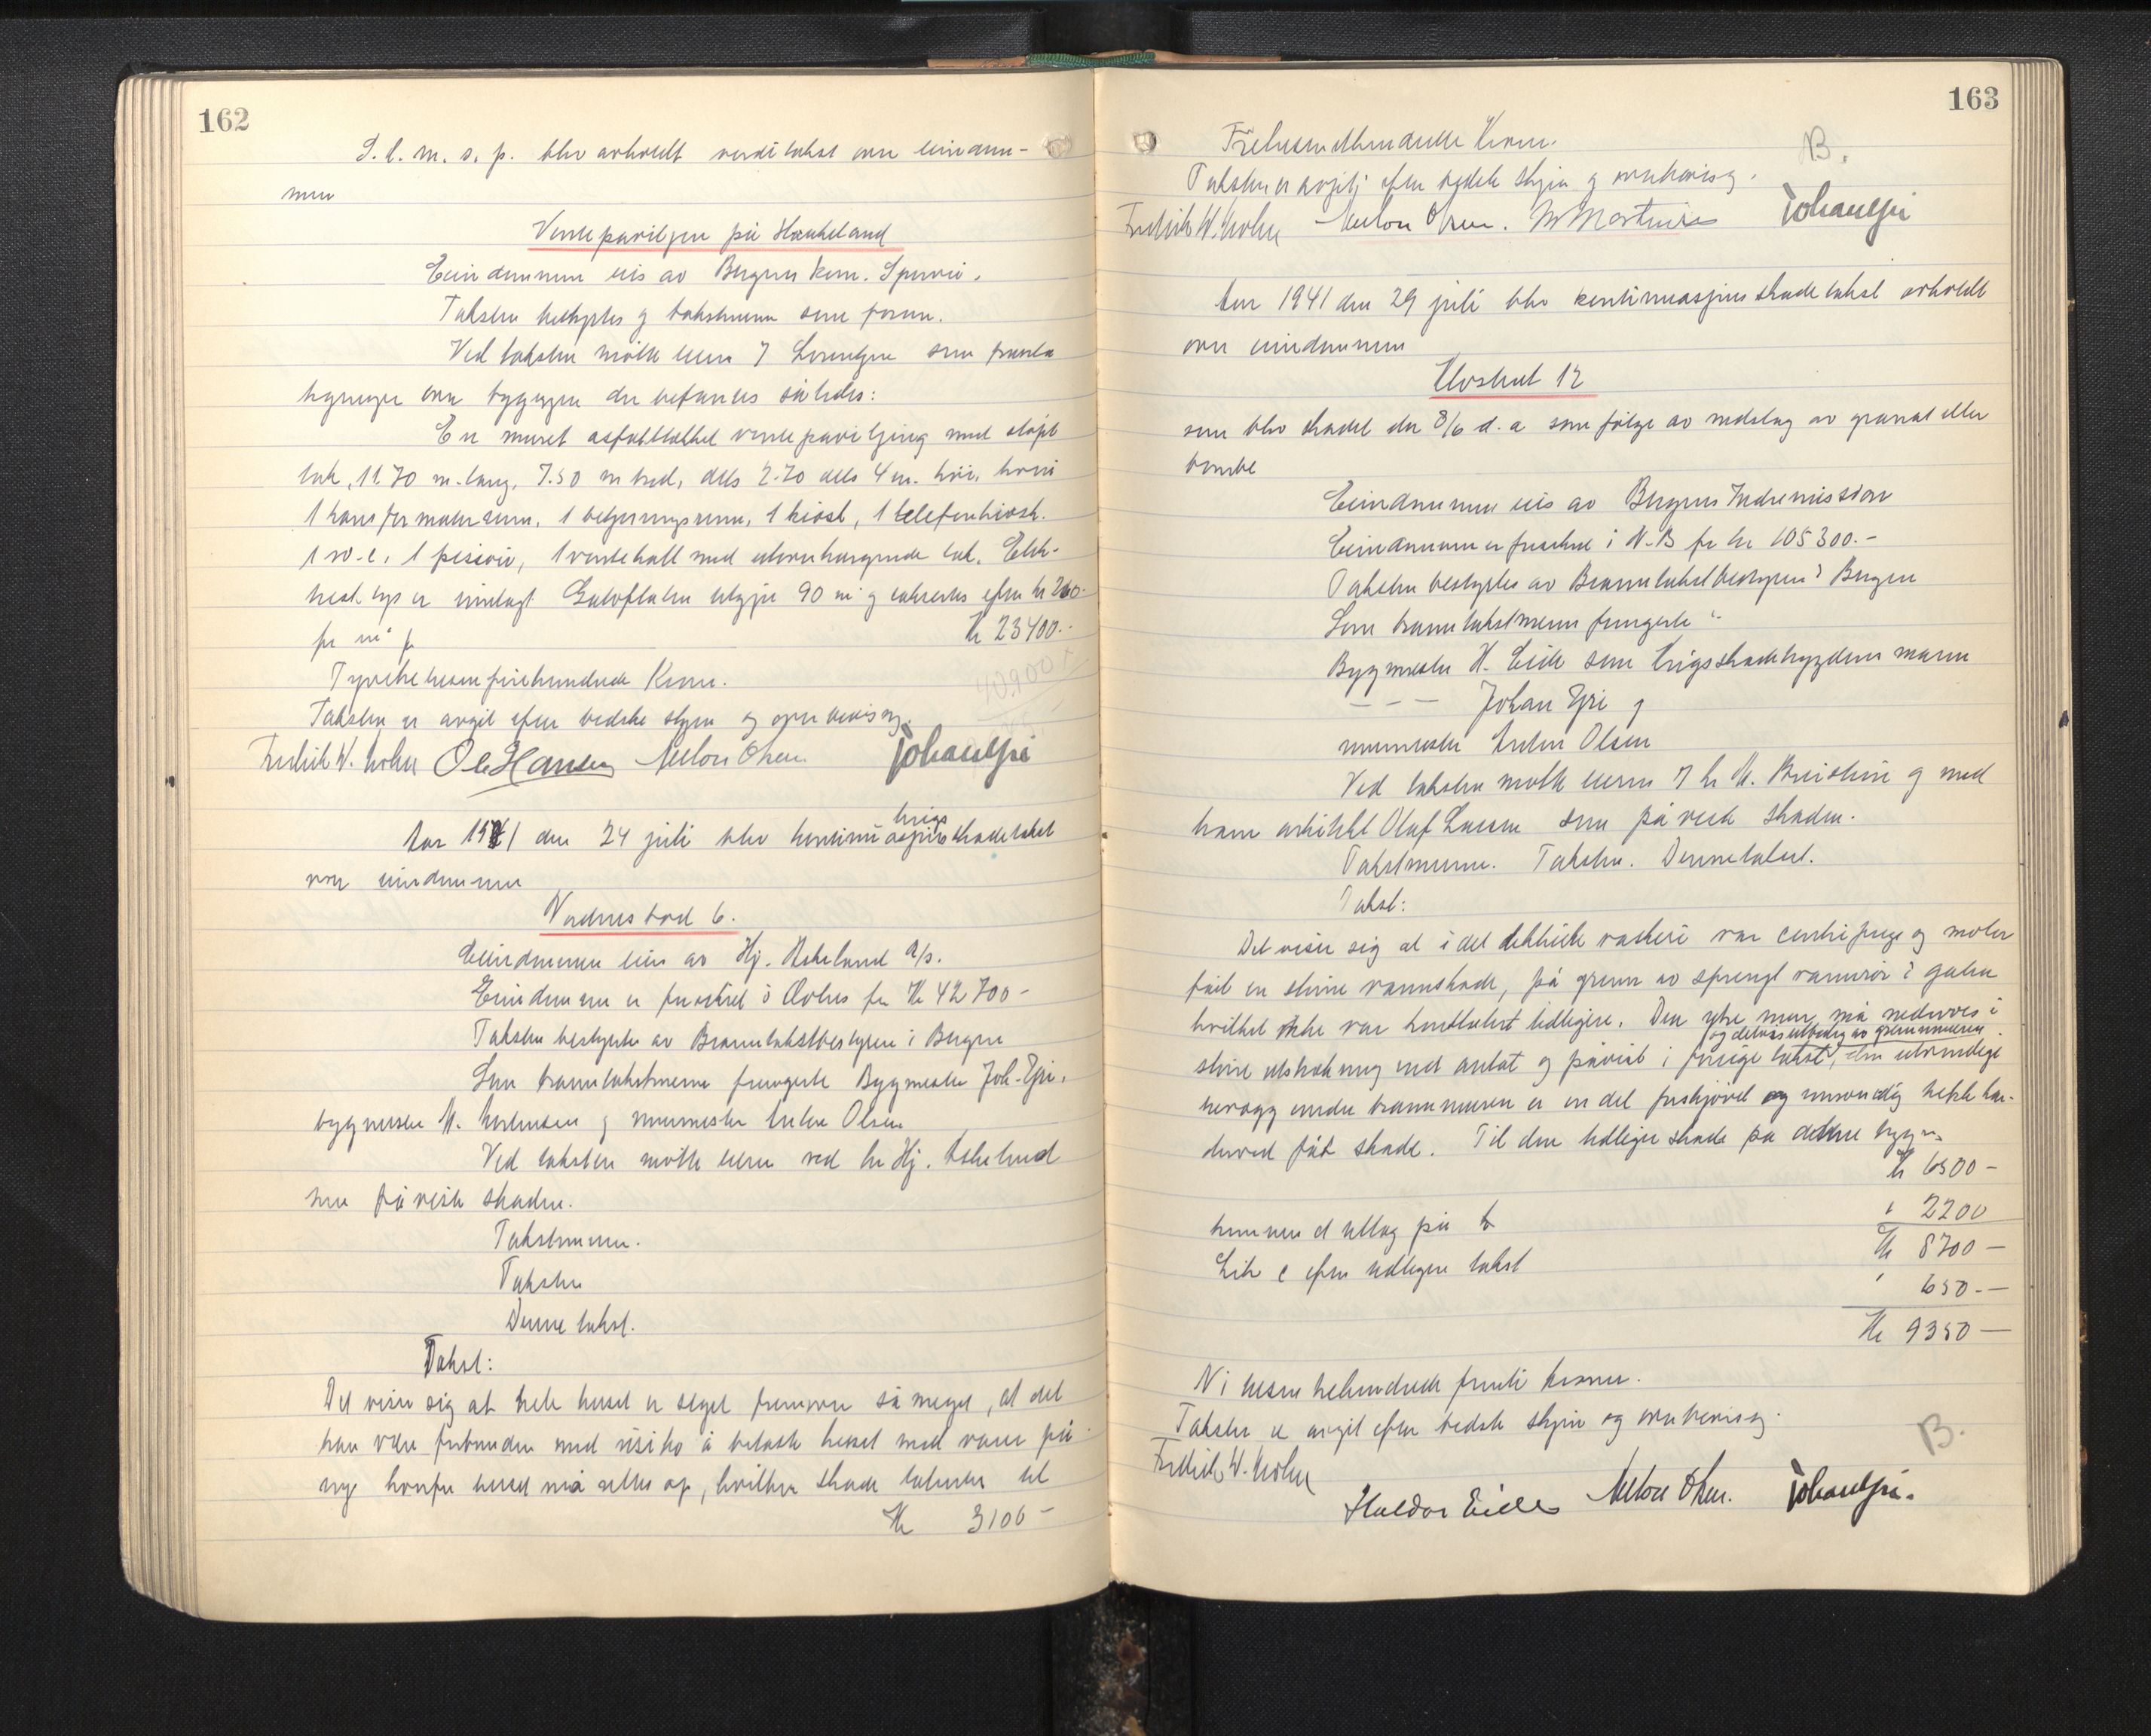 162
S. t. m. s. p. blev avholdt verditakst over eiendom-
men
Ventepaviljon på Haukeland
Eiendommen eies av Bergens kom. Sporvei.
Taksten bestyrtes og takstmenn som foran.
Ved taksten møtte eieren v/ Lorentzen som fremla
tegninger over bygningen der befantes således:
En muret asfalttekket ventepaviljong med støpt
tak, 11.70 m. lang, 7.50 m bred, dels 2.70 dels 4 m. høi, hvori
1 transformatorrum, 1 betjeningsrum, 1 kiosk, 1 telefonkiosk.
1 w.c. 1 pissoir, 1 ventehall med utoverhengende tak. Elek-
trisk lys er innlagt. Gulvflaten utgjør 90 m² og takseres efter kr 260.-
pr m² kr 23400.-
Tyvetretusenfirehundrede Kroner.
40.900
Taksten er avgit efter bedste skjøn og overbevisning.
Fredrik W. Ole Hansen Anton Olsen Johan Gjri
Aar 1941 den 24 juli blev kontinuasjons krigs skadetakst
over eiendommen
Vadmesbod 6.
Eiendommen eies av Hj. Askeland A/s.
Eiendommen er forsikret i for Kr 42700-
Taksten bestyrtes av Branntakstbestyreren i Bergen
Som branntakstmenn fungerte Bygmester Joh. Gjri,
bygmester M. Mortensen og murmester Anton Olsen
Ved taksten møtte eieren ved hr Hj. Askeland
som påviste skaden.
Takstmenn.
Taksten
Denne takst.
Takst:
Det viser sig at hele huset er seget fremover så meget, at det
kan være forbunden med risiko å belaste huset med varer på
ny hvorfor huset må rettes op, hvilken skade takseres til
Kr 3100-
163
Tretusenethundrede Kroner.
B.
Taksten er avgitt efter bedste skjøn og overbevisning.
Fredrik W. Anton Olsen. M Mortensen Johan Gjri
Aar 1941 den 29 juli blev kontinuasjons skadetakst avholdt
over eiendommen
Klostret 12
som blev skadet den 8/6 d. a som følge av nedslag av granat eller
bombe
Eiendommen eies av Bergens Indremission
Eiendommen er forsikret i N.B for kr 105300.-
Taksten bestyrtes av Branntakstbestyreren i Bergen
Som branntakstmenn fungerte :-
Bygmester H. Eide som krigsskadetrygdens mann
- - - Johan Gjri og
murmester Anton Olsen
Ved taksten møtte eieren v/ hr M. og med
ham arkitekt Olaf Larsen som påviste skaden.
Takstmenn. Taksten. Denne takst.
Takst:
Det viser sig at i det elektriske vaskeri var centrifuge og motor
fått en større vannskade, på grunn av sprengt vannrør i gaten
hvilket ikke var konstatert tidligere. Den ytre mur må nedrives i
og delvis utbedring av grunnmuren.
større utstrekning end antat og påvist i forrige takst, den utvendige
heregg under brannmuren er en del forskjøvet og innvendig har
derved fåt skade. Til den tidligere skade på dette bygn.
kr 6500-
kommer et tillæg på kr " 2200
Kr 8700-
Litr c efter tidligere takst " 650.-
Kr 9350-
Ni tusen trehundrede femti kroner.
Taksten er avgit efter bedste skjøn og overbevisning.
B.
Fredrik W.
Haldor Eide Anton Olsen. Johan Gjri.